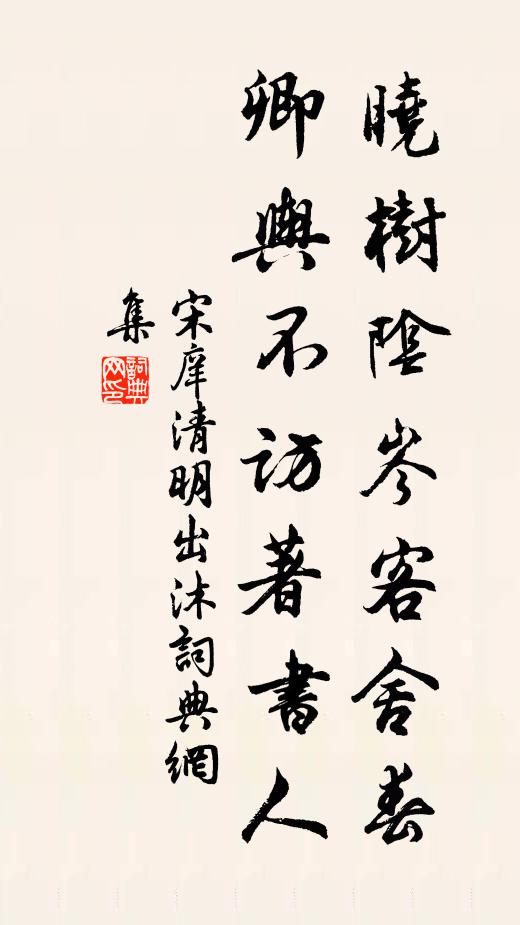 曉樹陰岑客舍春
卿輿不訪著書人
宋庠清明出沐詞典網
集
詞典
网印